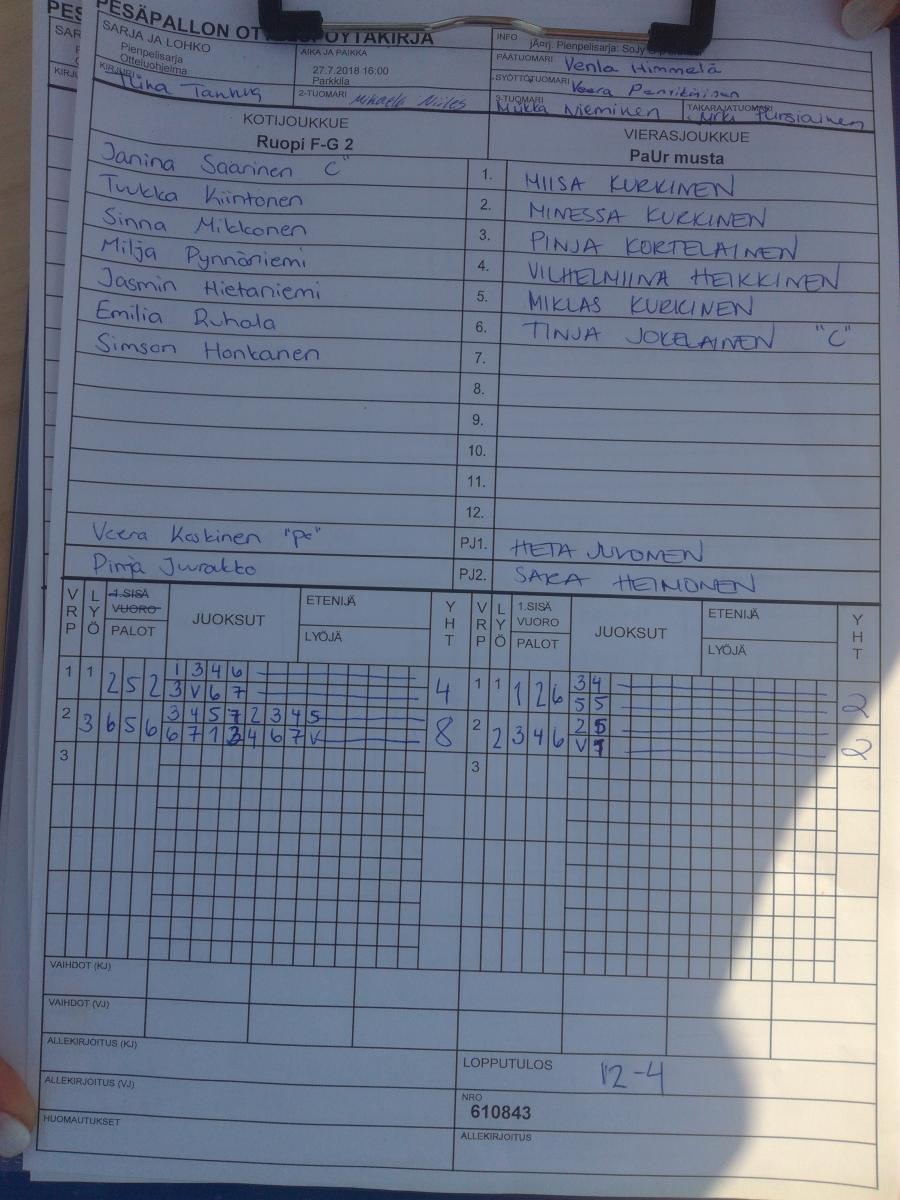 PESÄPALLON OTTELUPÖYTÄKIRJA
SARJA JA LOHKO
Pienpelisarja
Otteluohjelma
AIKA JA PAIKKA
27.7.2018 16:00
Parkkila
INFO
jÄrj. Pienpelisarja: SoJy
PÄÄTUOMARI Venla Himmelä
SYÖTTÖTUOMARI Veera
KIRJURI Tiina
2-TUOMARI
3-TUOMARI Miikka Nieminen
TAKARAJATUOMARI
KOTIJOUKKUE
Ruopi F-G 2
VIERASJOUKKUE
PaUr musta
Janina Saarinen C" 1. MIISA KURKINEN
Tuukka Kiintonen 2. MINESSA KURKINEN
Sinna Mikkonen 3. PINJA KORTELAINEN
Milja Pynnöniemi 4. VILHELMIINA HEIKKINEN
Jasmin Hietaniemi 5. MIKLAS KURKINEN
Emilia Ruhala 6. TINJA JOKELAINEN "C"
Simson Honkanen 7.
8.
9.
10.
11.
12.
Veera Koskinen "Pe" PJ1. HETA JUVONEN
Pinja Juurakko PJ2. SARA HEIMONEN
VRP LYÖ 1.SISÄ VUORO PALOT JUOKSUT ETENIJÄ LYÖJÄ YHT VRP LYÖ 1.SISÄ VUORO PALOT JUOKSUT ETENIJÄ LYÖJÄ YHT
1 1 2 5 2 1 3 4 6 4 1 1 1 2 6 3 4 2
3 V 6 7 5 5
2 3 6 5 6 3 4 5 7 2 3 4 5 8 2 2 3 4 6 2 5 2
6 7 1 4 6 7 V V
3 3
VAIHDOT (KJ)
VAIHDOT (VJ)
ALLEKIRJOITUS (KJ)
LOPPUTULOS 12-4
ALLEKIRJOITUS (VJ)
NRO
610843
HUOMAUTUKSET
ALLEKIRJOITUS